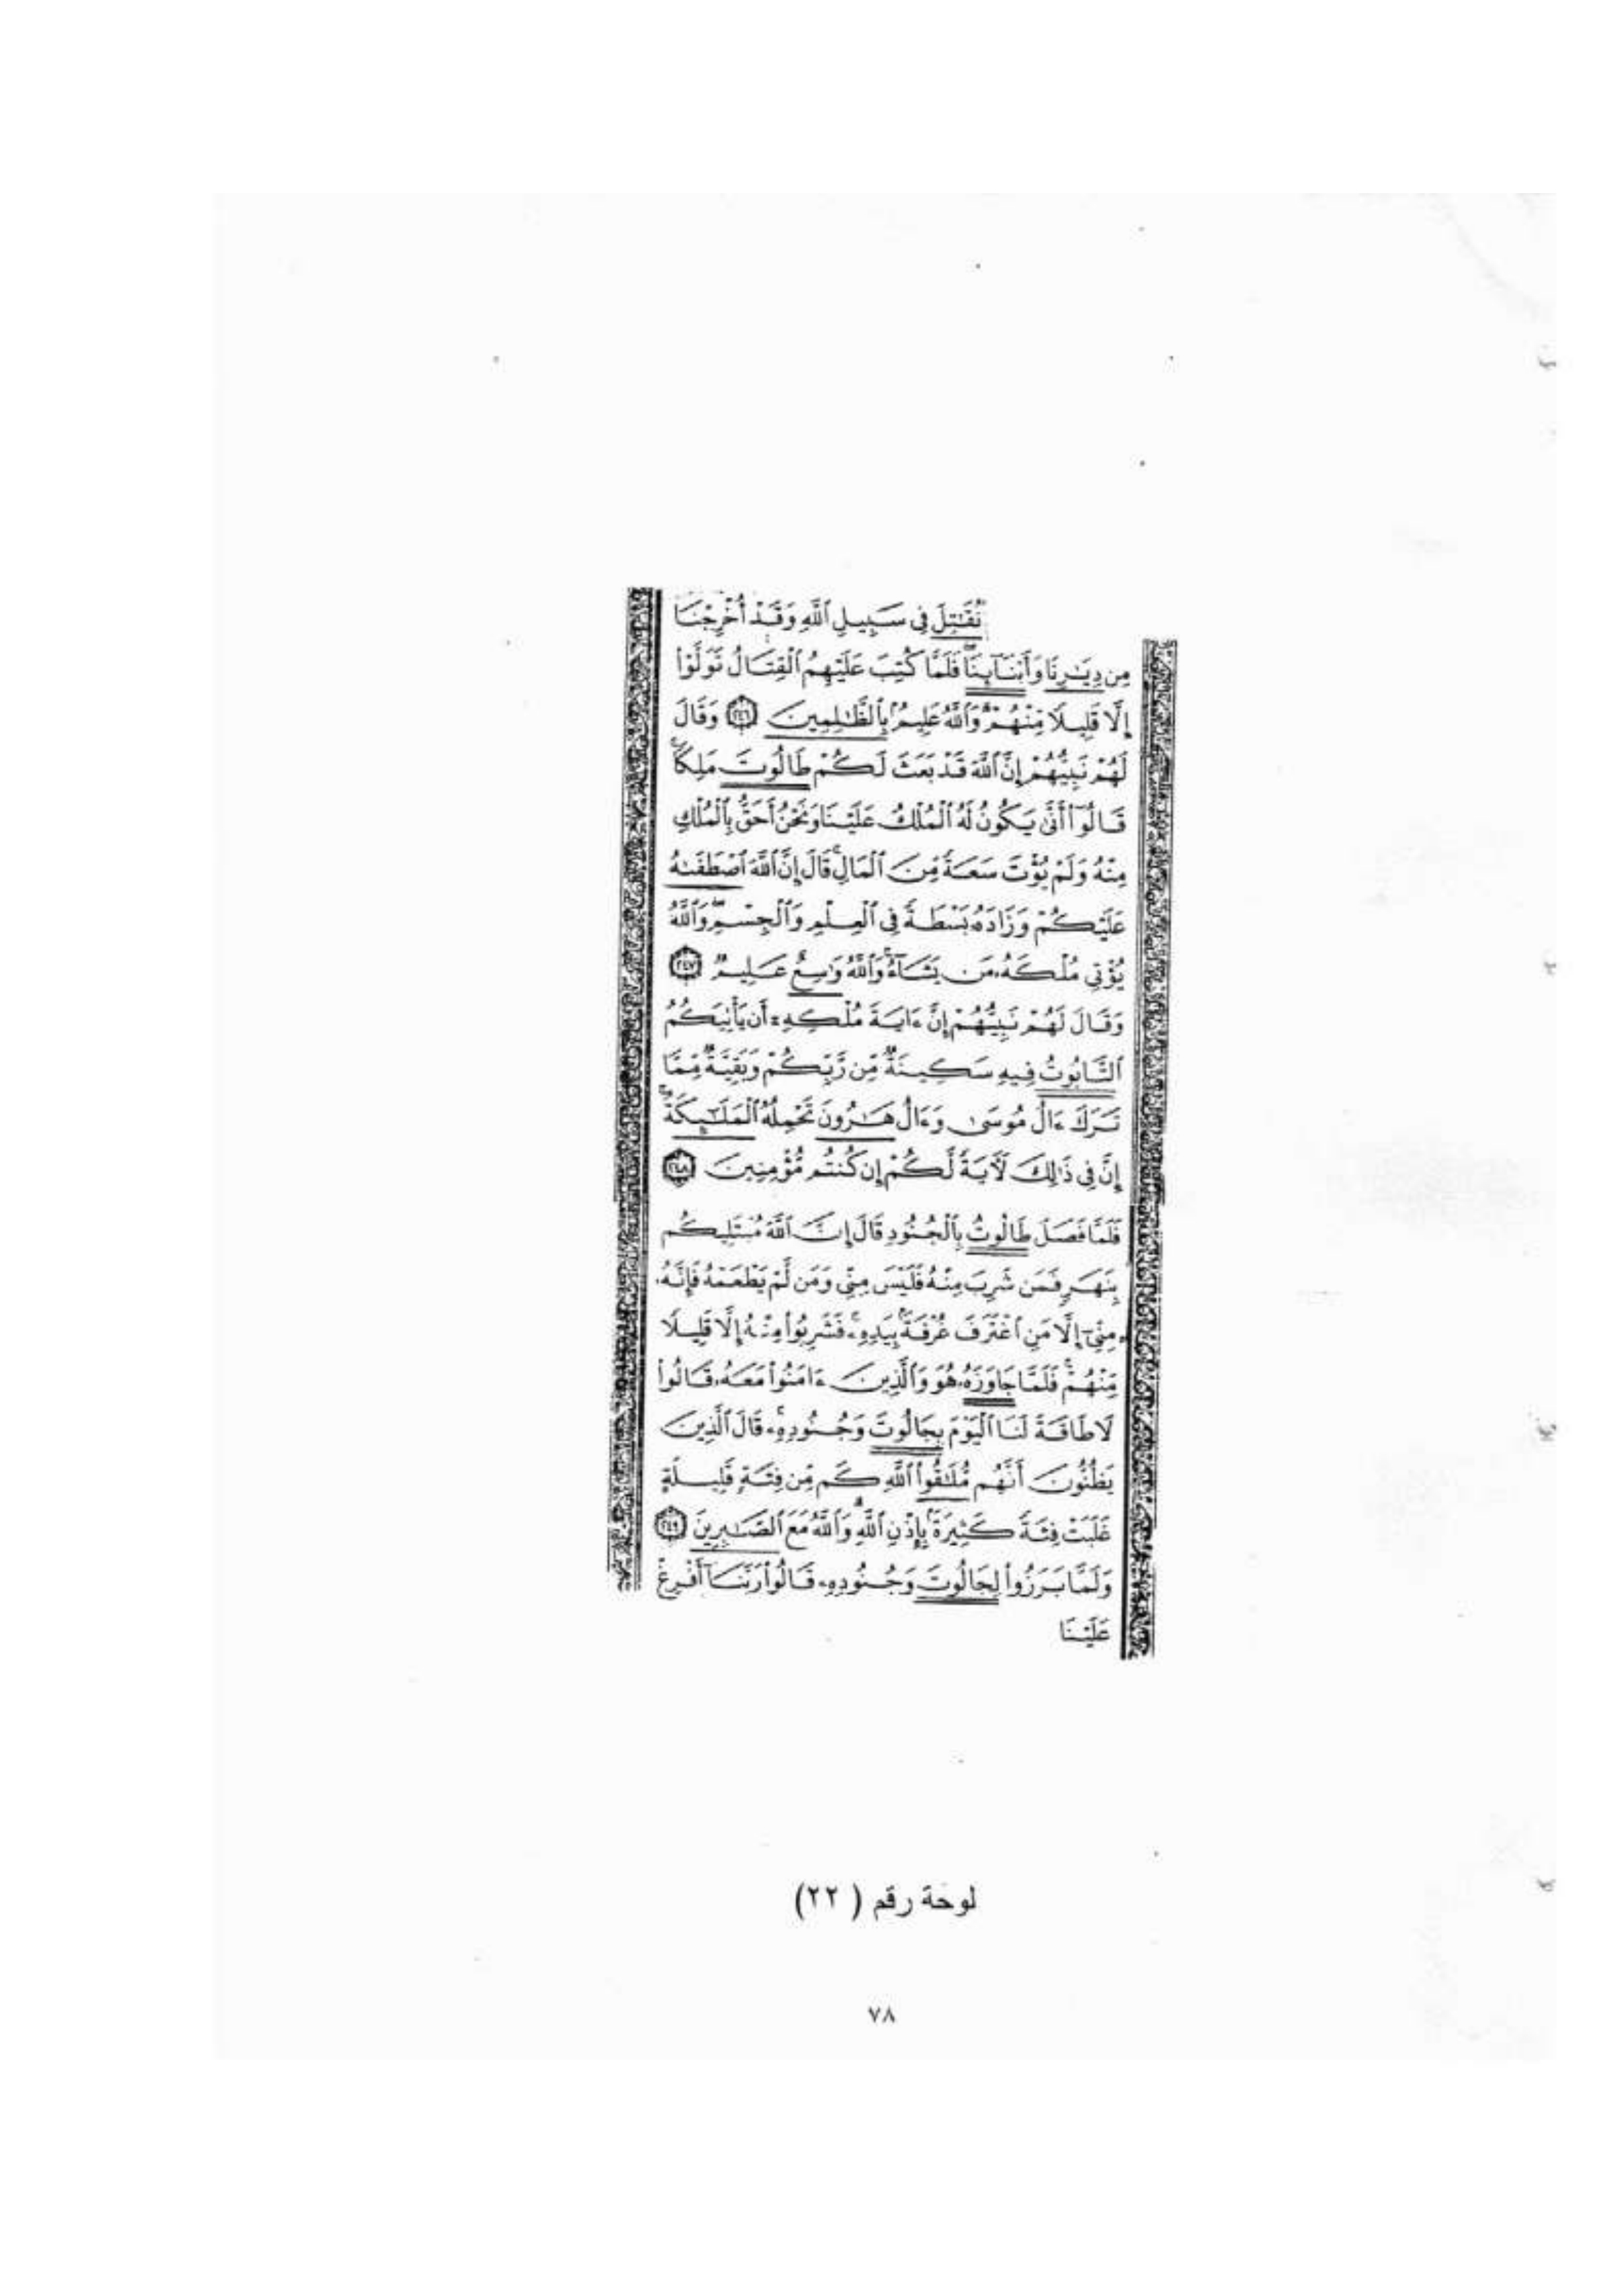 نُقَٰتِلَ فِي سَبِيلِ ٱللَّهِ وَقَدْ أُخْرِجْنَا
مِن دِيَٰرِنَا وَأَبْنَآئِنَا ۖ فَلَمَّا كُتِبَ عَلَيْهِمُ ٱلْقِتَالُ تَوَلَّوْا۟
إِلَّا قَلِيلًا مِّنْهُمْ ۗ وَٱللَّهُ عَلِيمٌۢ بِٱلظَّٰلِمِينَ ﴿٢٤٦﴾ وَقَالَ
لَهُمْ نَبِيُّهُمْ إِنَّ ٱللَّهَ قَدْ بَعَثَ لَكُمْ طَالُوتَ مَلِكًا ۚ
قَالُوٓا۟ أَنَّىٰ يَكُونُ لَهُ ٱلْمُلْكُ عَلَيْنَا وَنَحْنُ أَحَقُّ بِٱلْمُلْكِ
مِنْهُ وَلَمْ يُؤْتَ سَعَةً مِّنَ ٱلْمَالِ ۚ قَالَ إِنَّ ٱللَّهَ ٱصْطَفَىٰهُ
عَلَيْكُمْ وَزَادَهُۥ بَسْطَةً فِي ٱلْعِلْمِ وَٱلْجِسْمِ ۖ وَٱللَّهُ
يُؤْتِي مُلْكَهُۥ مَن يَشَآءُ ۚ وَٱللَّهُ وَٰسِعٌ عَلِيمٌ ﴿٢٤٧﴾
وَقَالَ لَهُمْ نَبِيُّهُمْ إِنَّ ءَايَةَ مُلْكِهِۦٓ أَن يَأْتِيَكُمُ
ٱلتَّابُوتُ فِيهِ سَكِينَةٌ مِّن رَّبِّكُمْ وَبَقِيَّةٌ مِّمَّا
تَرَكَ ءَالُ مُوسَىٰ وَءَالُ هَٰرُونَ تَحْمِلُهُ ٱلْمَلَٰٓئِكَةُ ۚ
إِنَّ فِي ذَٰلِكَ لَءَايَةً لَّكُمْ إِن كُنتُم مُّؤْمِنِينَ ﴿٢٤٨﴾
فَلَمَّا فَصَلَ طَالُوتُ بِٱلْجُنُودِ قَالَ إِنَّ ٱللَّهَ مُبْتَلِيكُم
بِنَهَرٍ فَمَن شَرِبَ مِنْهُ فَلَيْسَ مِنِّي وَمَن لَّمْ يَطْعَمْهُ فَإِنَّهُۥ
مِنِّيٓ إِلَّا مَنِ ٱغْتَرَفَ غُرْفَةًۢ بِيَدِهِۦ ۚ فَشَرِبُوا۟ مِنْهُ إِلَّا قَلِيلًا
مِّنْهُمْ ۚ فَلَمَّا جَاوَزَهُۥ هُوَ وَٱلَّذِينَ ءَامَنُوا۟ مَعَهُۥ قَالُوا۟
لَا طَاقَةَ لَنَا ٱلْيَوْمَ بِجَالُوتَ وَجُنُودِهِۦ ۚ قَالَ ٱلَّذِينَ
يَظُنُّونَ أَنَّهُم مُّلَٰقُوا۟ ٱللَّهِ كَم مِّن فِئَةٍ قَلِيلَةٍ
غَلَبَتْ فِئَةً كَثِيرَةًۢ بِإِذْنِ ٱللَّهِ ۗ وَٱللَّهُ مَعَ ٱلصَّٰبِرِينَ ﴿٢٤٩﴾
وَلَمَّا بَرَزُوا۟ لِجَالُوتَ وَجُنُودِهِۦ قَالُوا۟ رَبَّنَآ أَفْرِغْ
عَلَيْنَا
لوحة رقم ( ٢٢)
٧٨